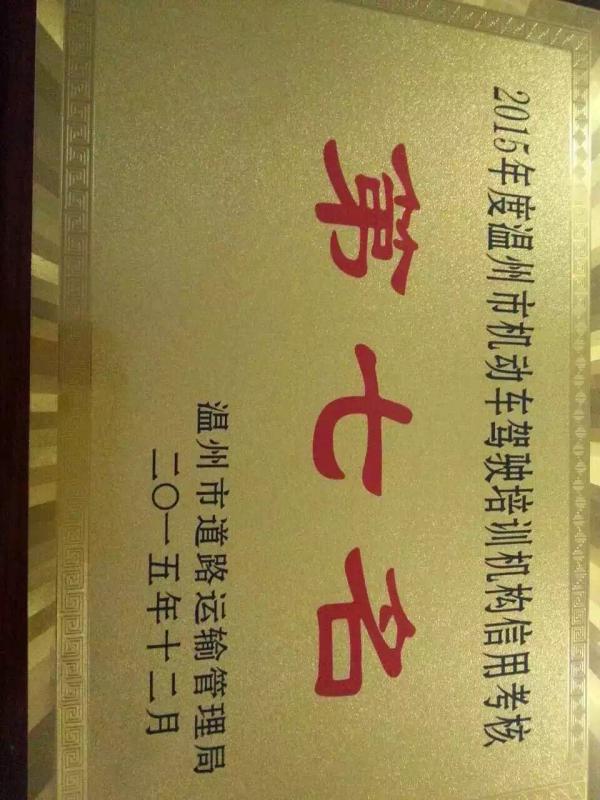 2015年度温州市机动车驾驶培训机构信用考核
第七名
温州市道路运输管理局
二〇一五年十二月